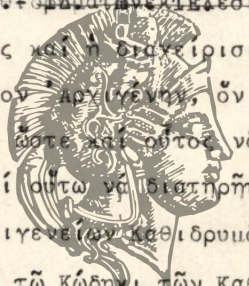 ς καί ἡ διαχείρισ
ον Ἀρχιγένην, ὅν
ὥστε καί οὗτος ν
ί οὕτω νά διατηρῆ
ιγενείων Καθιδρυμ
τῷ Κώδηκι τῶν Κα